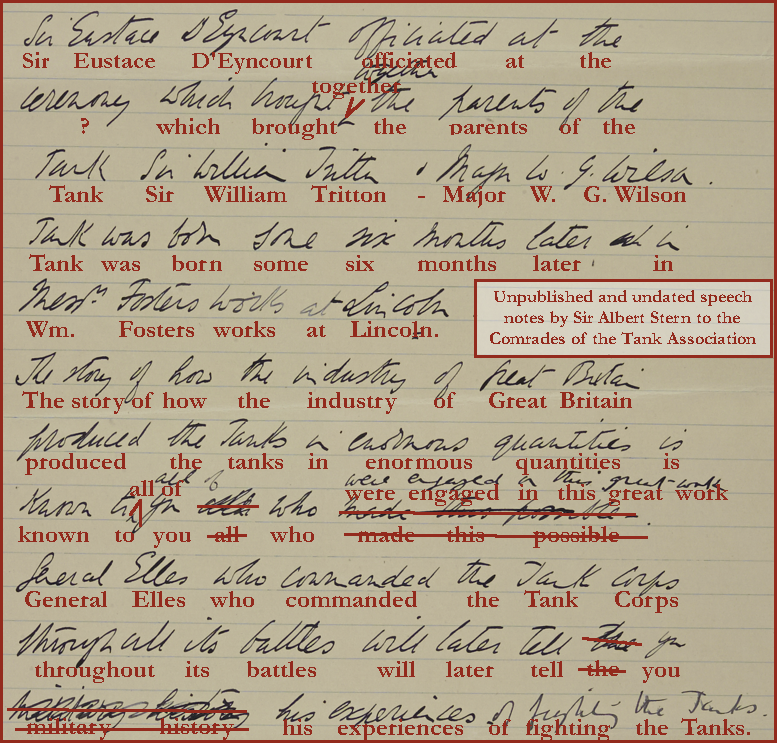 Sir Eustace D'Eyncourt officiated at the
Sir Eustace D'Eyncourt officiated at the
together
together
ceremony which brought the parents of the
? which brought the parents of the
Tank Sir William Tritton & Major W. G. Wilson.
Tank Sir William Tritton - Major W. G. Wilson
Tank was born some six months later in
Tank was born some six months later in
Messrs Fosters works at Lincoln
Wm. Fosters works at Lincoln.
Unpublished and undated speech
notes by Sir Albert Stern to the
Comrades of the Tank Association
The story of how the industry of Great Britain
The story of how the industry of Great Britain
produced the Tanks in enormous quantities is
produced the tanks in enormous quantities is
all of were engaged in this great work
all of were engaged in this great work
known to you all who made this possible.
known to you all who made this possible
General Elles who commanded the Tank Corps
General Elles who commanded the Tank Corps
through all its battles will later tell the you
throughout its battles will later tell the you
military history his experiences of fighting the Tanks.
military history his experiences of fighting the Tanks.